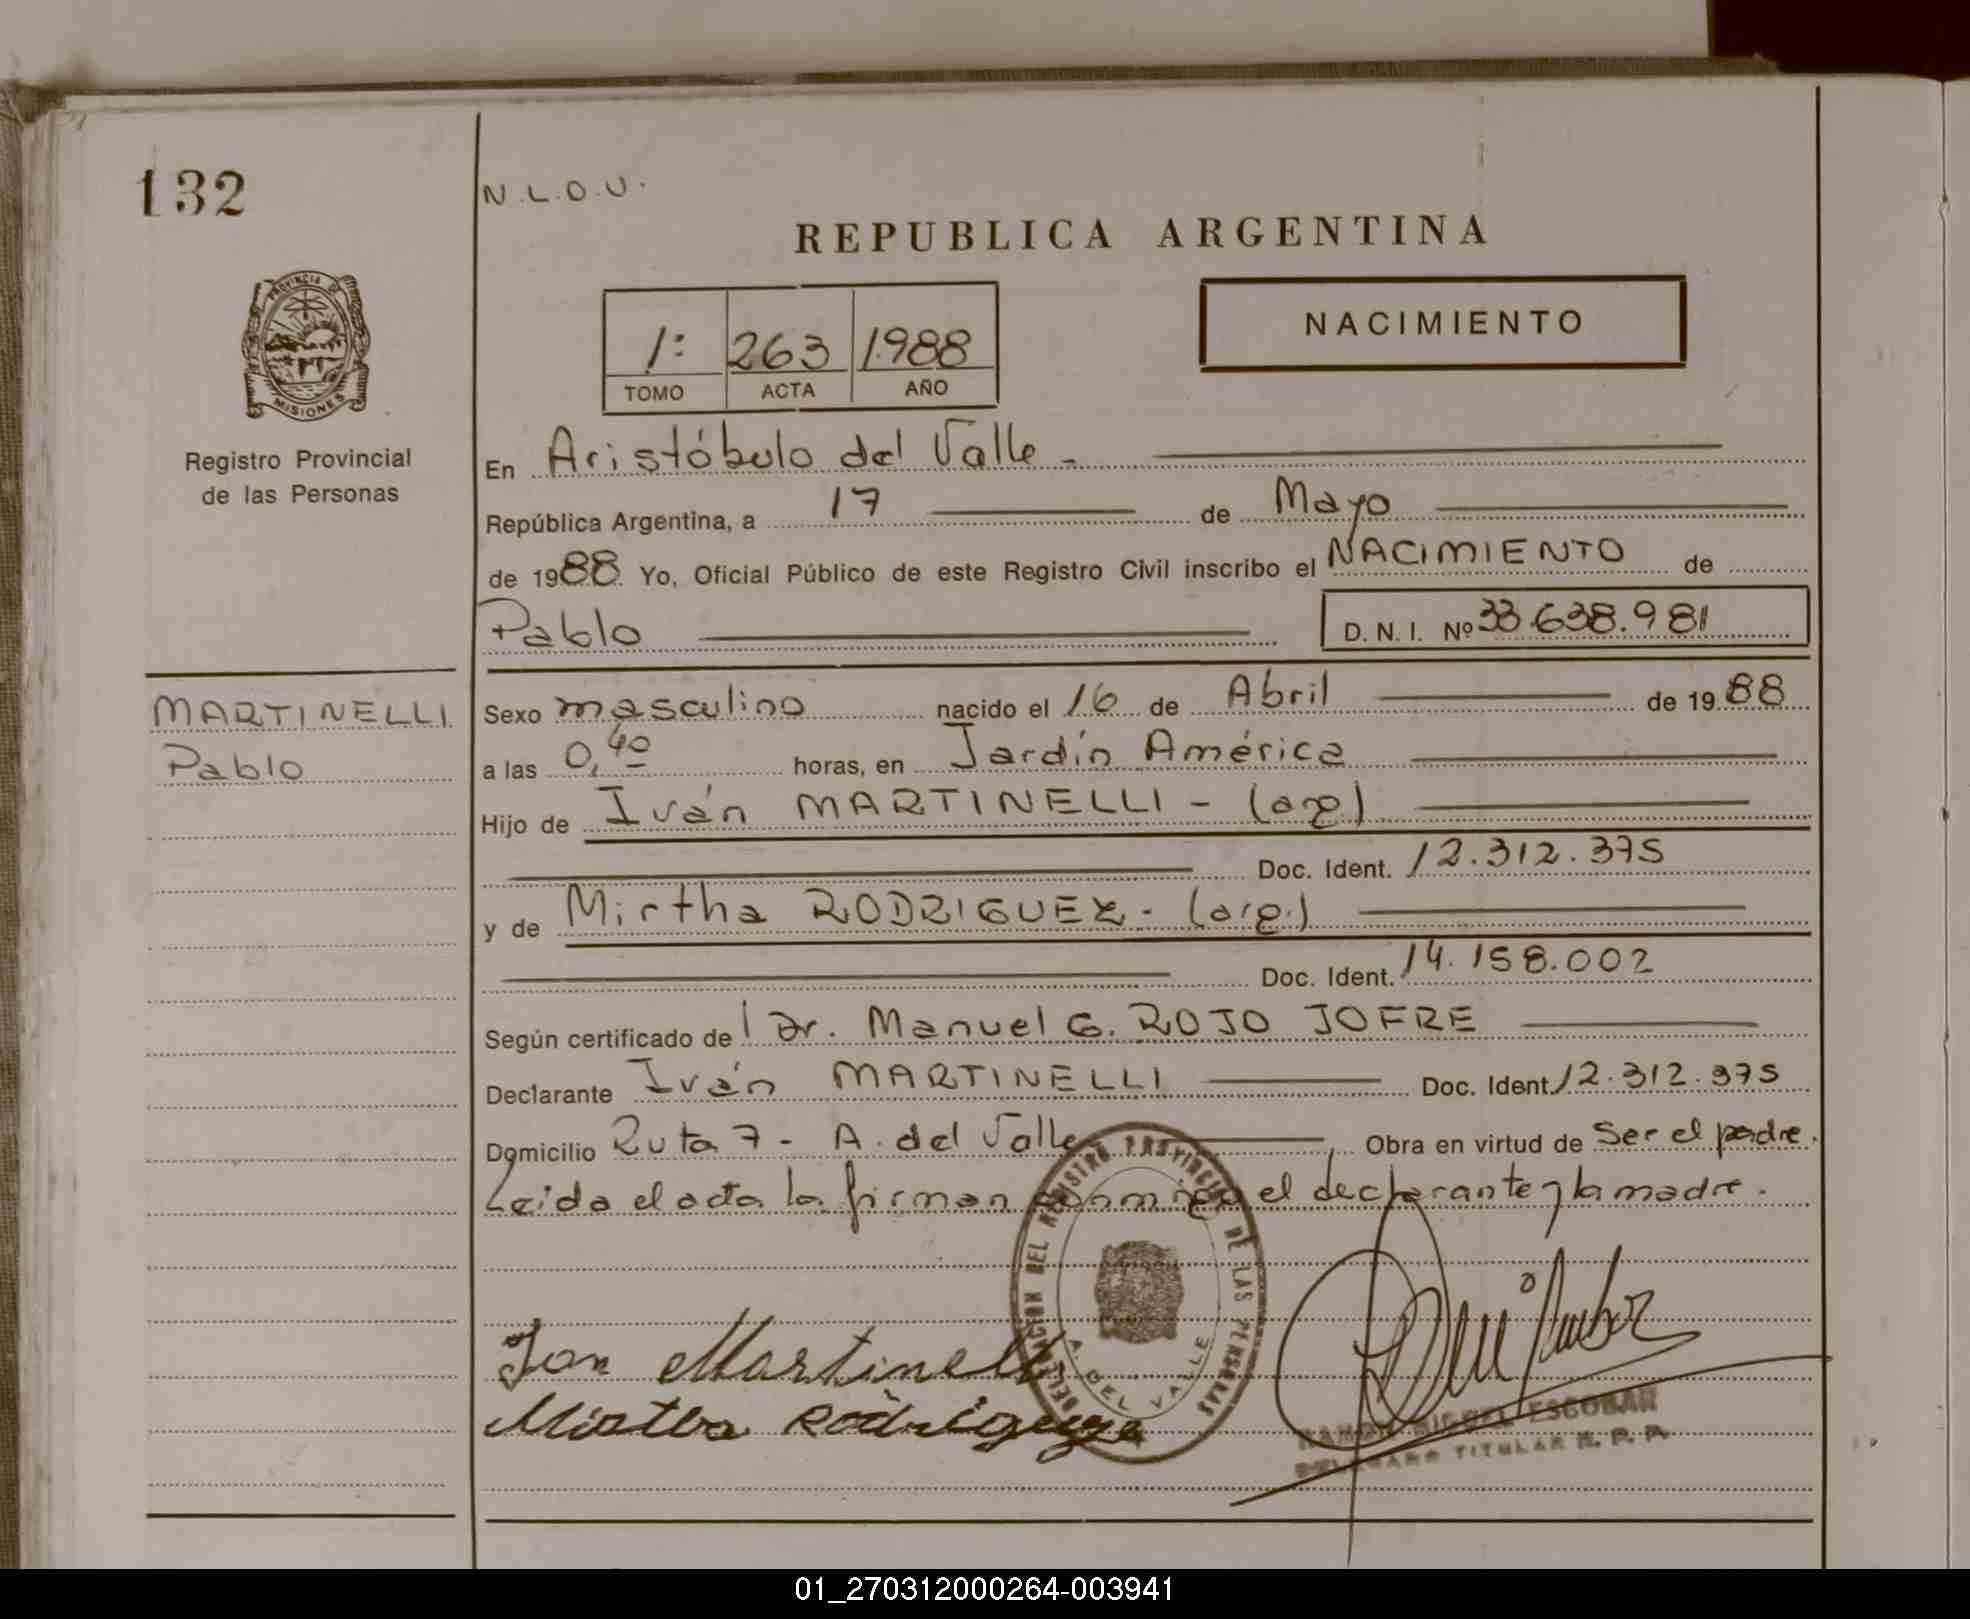 132
N.L.O.U.
REPUBLICA ARGENTINA
PROVINCIA D
MISIONES
Registro Provincial
de las Personas
1: 263 1.988
TOMO ACTA AÑO
NACIMIENTO
En Aristóbulo del Valle -
República Argentina, a 17 de Mayo
de 1988. Yo, Oficial Público de este Registro Civil inscribo el NACIMIENTO de
Pablo D. N. I. Nº 33.638.981
MARTINELLI
Pablo
Sexo masculino nacido el 16 de Abril de 1988
a las 0,40 horas, en Jardín América
Hijo de Iván MARTINELLI - (arg)
Doc. Ident. 12.312.375
y de Mirtha RODRIGUEZ - (arg.)
Doc. Ident. 14.158.002
Según certificado del Dr. Manuel G. ROJO JOFRE
Declarante Iván MARTINELLI Doc. Ident. 12.312.375
Domicilio Ruta 7 - A. del Valle Obra en virtud de Ser el padre.
Leida el acta la firman conmigo el declarante y la madre.
DELEGACION DEL REGISTRO PROVINCIAL DE LAS PERSONAS
A. DEL VALLE
Ivan Martinelli
Mirtha Rodriguez
RAMON MIGUEL ESCOBAR
DELEGADO TITULAR R. P. P.
01_270312000264-003941